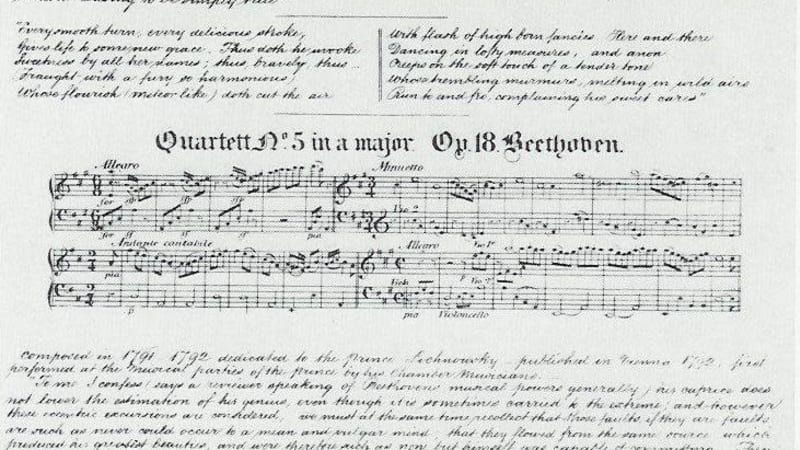 Every smooth turn, every delicious stroke,
Gives life to some new grace. Thus doth he
Sweetness by all her names; thus, bravely thus
Fraught with a fury so harmonious
Whose flourish (meteor like) doth cut the air
With flash of high born fancies Here and there
Dancing in lofty measures, and anon
Creeps on the soft touch of a tender tone
Whose trembling murmurs, melting in wild airs
Run to and fro, complaining his sweet cares"
Quartett No. 5 in a major Op. 18. Beethoven.
Allegro
Minuetto
for ff ff ff
Vio 2
for ff ff ff pia
Andante cantabile
Allegro Vio 1o
pia
Viola P Vio 2o
p pia Violoncello
Composed in 1791 1792 dedicated to the Prince published in Vienna 1792, first
performed at the Musical parties of the prince by his Chamber Musicians.
"To me I confess (says a reviewer speaking of Beethovens musical powers generally) his caprice does
not lower the estimation of his genius, even though it is sometimes carried to the extreme; and however
these eccentric excursions are considered, we must at the same time recollect that those faults, if they are faults
are such as never could occur to a mean and vulgar mind that they flowed from the same source which
produced his greatest beauties, and were therefore such as none but himself was capable of committing. They